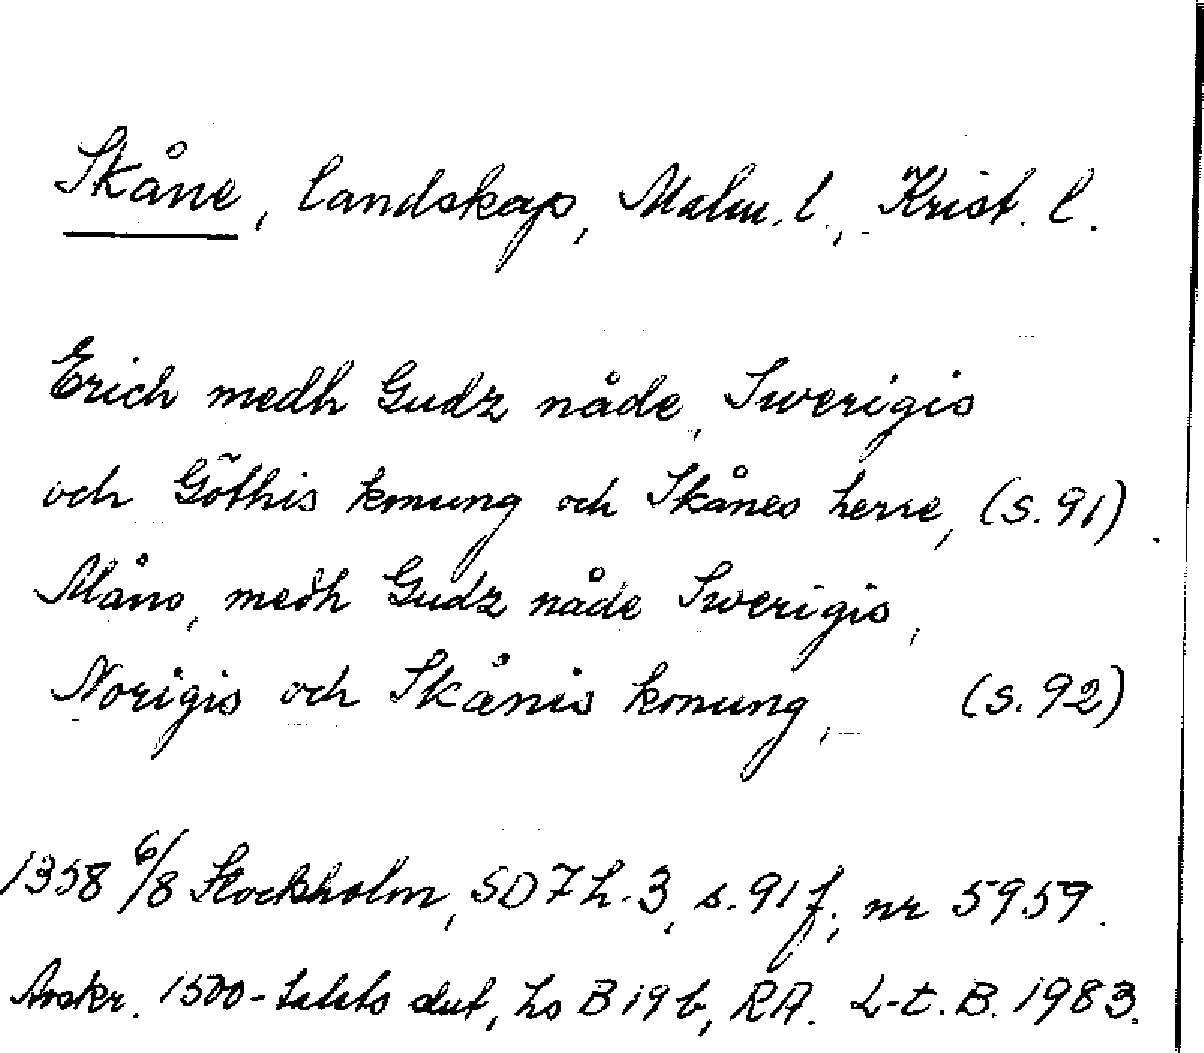 Skåne, landskap, Malm. l., Krist. l.
Erich medh Gudz nåde, Swerigis
och Göthis konung och Skånes herre, (s. 91).
Måns, medh Gudz nåde Swerigis,
Norigis och Skånis konung, (s. 92)
1358 6/8 Stockholm, SD 7 h. 3, s. 91 f., nr 5959.
Avskr. 1500-talets slut, hs B 19 b, RA. L-E. B. 1983.